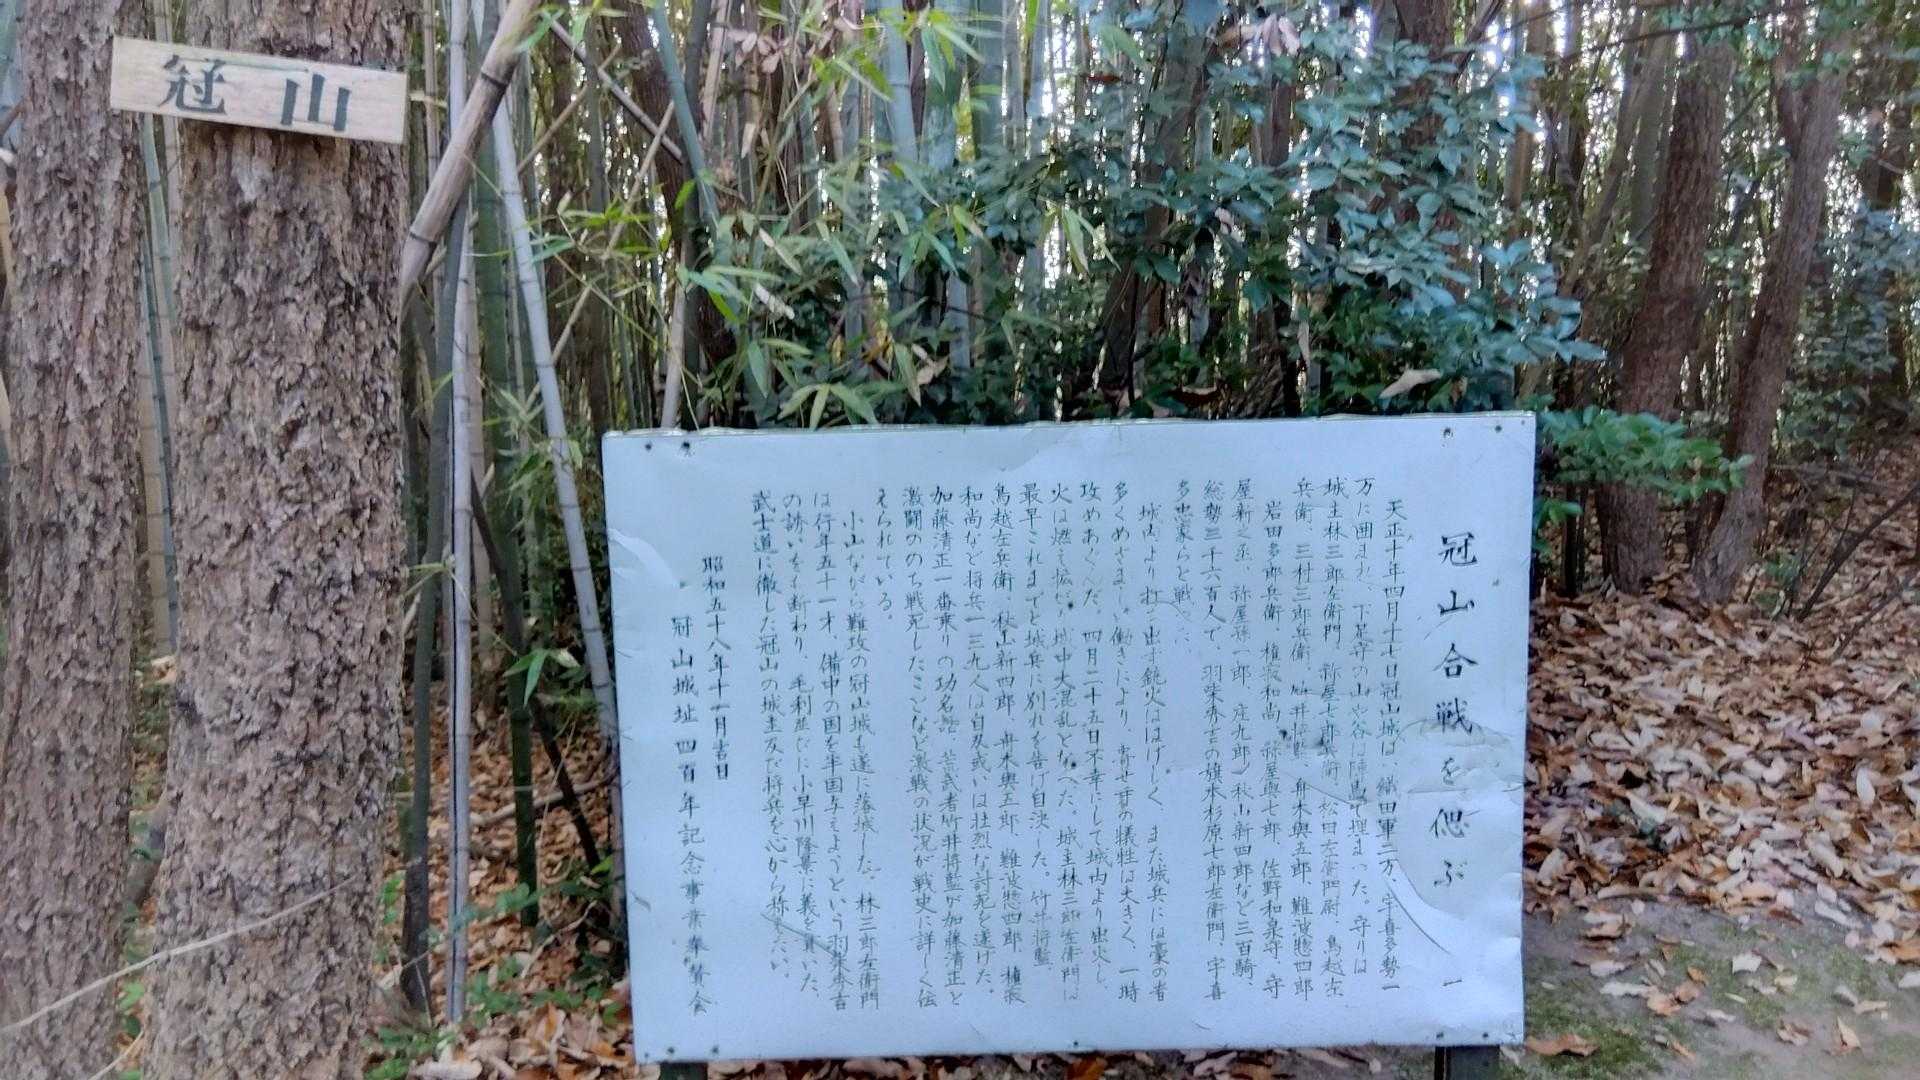 冠山
冠山合戦を偲ぶ
天正十年四月十七日冠山城は、織田軍二万、宇喜多勢一
万に囲まれ、下足守の山や谷は陣馬で埋まった。守りは
城主林三郎左衛門、祢屋七郎兵衛、松田左衛門尉、鳥越左
兵衛、三村三郎兵衛、竹井将監、舟木與五郎、難波惣四郎
岩田多郎兵衛、植寂和尚、祢屋與七郎、佐野和泉守、守
屋新之丞、祢屋孫一郎、庄九郎、秋山新四郎など三百騎、
総勢三千六百人で、羽柴秀吉の旗本杉原七郎左衛門、宇喜
多忠家らと戦った。
城内より打ち出す銃火ははげしく、また城兵には豪の者
多くめざましい働きにより、寄せ手の犠牲は大きく、一時
攻めあぐんだ。四月二十五日不幸にして城内より出火し、
火は燃え拡がり城中大混乱となった。城主林三郎左衛門は
最早これまでと城兵に別れを告げ自決した。竹井将監、
鳥越左兵衛、秋山新四郎、舟木與五郎、難波惣四郎、植寂
和尚など将兵一三九人は自刃或いは壮烈な討死を遂げた。
加藤清正一番乗りの功名話、若武者竹井将監が加藤清正と
激闘ののち戦死したことなど激戦の状況が戦史に詳しく伝
えられている。
小山ながら難攻の冠山城も遂に落城した。林三郎左衛門
は行年五十一才、備中の国を半国与えようという羽柴秀吉
の誘いをも断わり、毛利並びに小早川隆景に義を貫いた、
武士道に徹した冠山の城主及び将兵を心から称えたい。
昭和五十八年十一月吉日
冠山城址四百年記念事業奉賛会